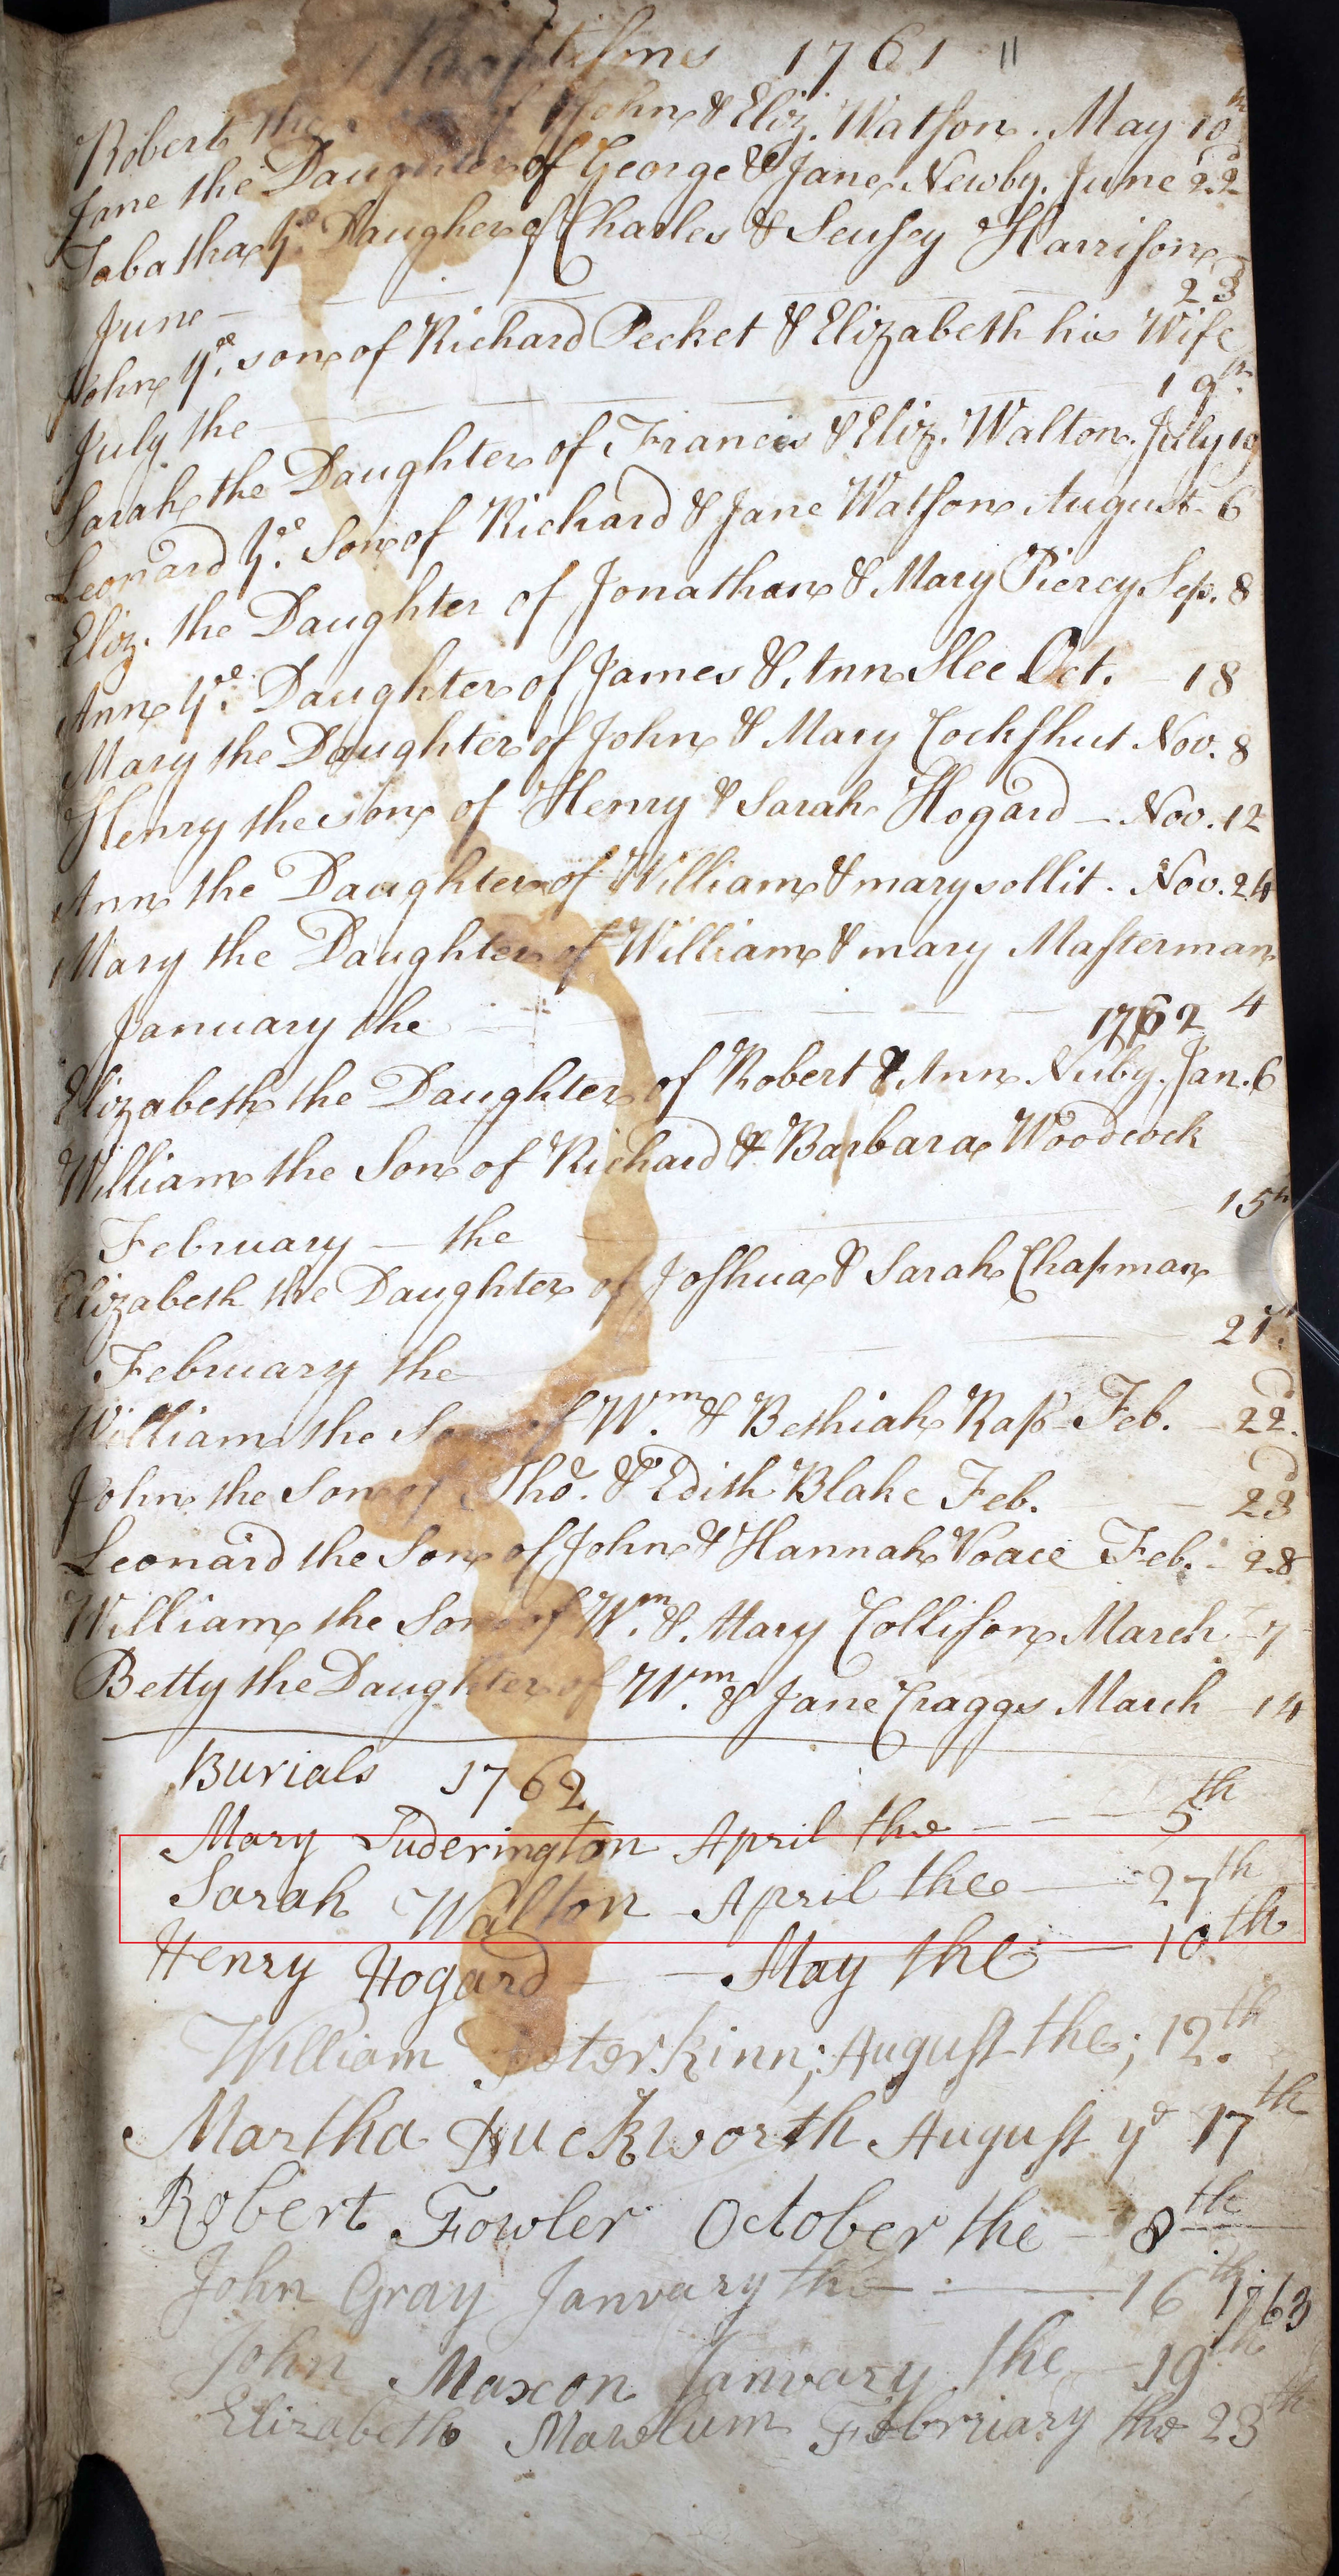 Baptisms 1761 11
Robert the of John & Eliz. Watson. May 10th
Jane the Daughter of George & Jane Newby. June 22d
Tabatha ye Daugher of Charles & Seusey Harrison
June - 23d
John ye son of Richard Pecket & Elizabeth his Wife
July the 19th
Sarah the Daughter of Francis & Eliz. Walton. July 19
Leonard ye Son of Richard & Jane Watson August 6
Eliz. the Daughter of Jonathan & Mary Piercy Sep. 8
Ann ye Daughter of James & Ann Slee Oct. - 18
Mary the Daughter of John & Mary Cockshut Nov. 8
Henry the son of Henry & Sarah Hogard - Nov. 12
Ann the Daughter of William & mary sollit. Nov. 24
Mary the Daughter of William & mary Masterman
January the 1762 4
Elizabeth the Daughter of Robert & Ann Nuby. Jan. 6
William the Son of Richard & Barbara Woodcock
February - the 15th
Elizabeth the Daughter of Joshua & Sarah Chapman
February the 21st
William the Son of Wm. & Bethiah Rass Feb. - 22d
John the Son of Tho. & Edith Blake Feb. - 23d
Leonard the Son of John & Hannah Voace Feb. - 28
William the Son of Wm. & Mary Collison March - 7
Betty the Daughter of Wm. & Jane Craggs March - 14
Burials 1762
Mary Suderington April the - - - 5th
Sarah Walton April the - 27th
Henry Hogard - - May the - 10th
William Peterkinn; August the; 12th.
Martha Duckworth August ye 17th
Robert Fowler October the - 8th
John Gray January the - 16th 1763
John Maxon January the - 19th
Elizabeth February the 23th